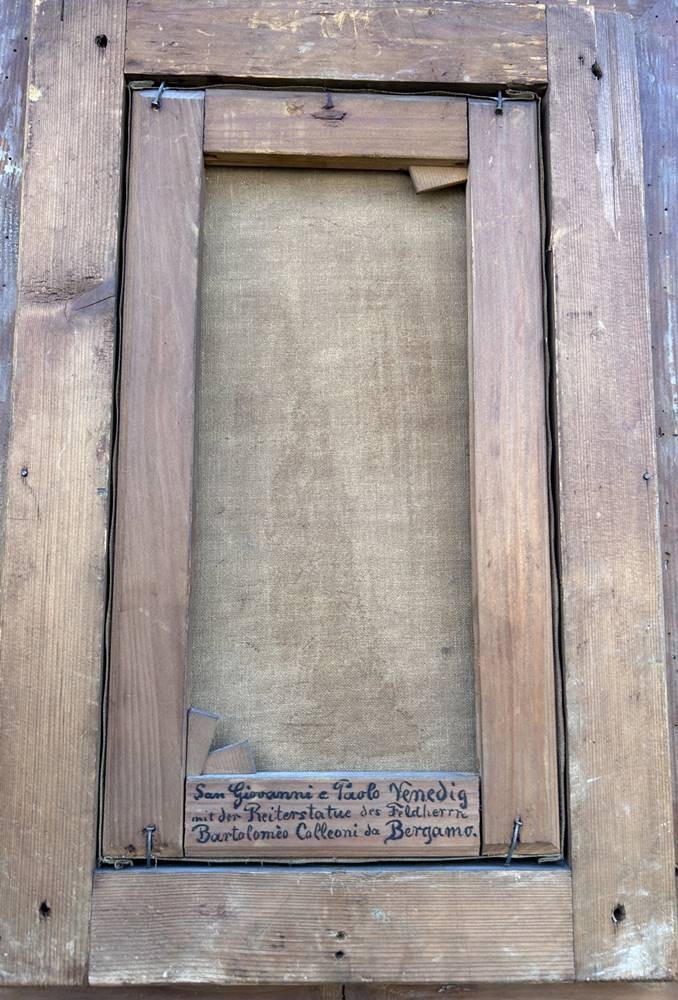 San Giovanni e Paolo Venedig
mit der Reiterstatue des Feldherrn
Bartolomèo Colleoni da Bergamo.